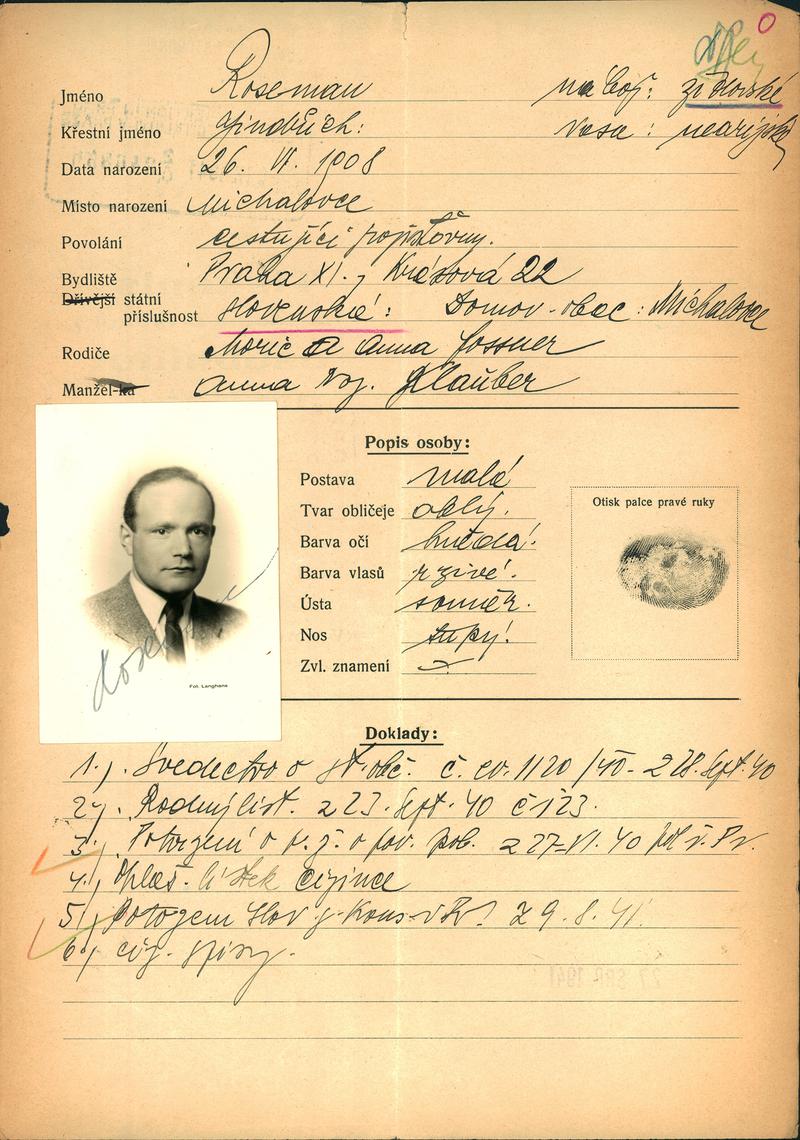 Jméno Roseman nábož: židovské
Křestní jméno Jindřich: rasa: nearijská
Data narození 26. VI. 1908
Místo narození Michalovce
Povolání cestující pojišťovny.
Bydliště Praha XI., Krásova 22
Dřívější státní
příslušnost slovenská: Domov. obec: Michalovce
Rodiče Moric a Anna Fossner
Manžel-ka Anna roz. Glauber
Popis osoby:
Postava malá
Tvar obličeje oblý.
Barva očí hnědá.
Barva vlasů rzivé.
Ústa souměr.
Nos tupý.
Zvl. znamení
Otisk palce pravé ruky
Fot. Langhans
Doklady:
1.) Svedectvo o st. obč. č. ev. 1120/40 - z 28. Sept. 40
2.) Rodný list. z 23. Sept. 40 č 123.
3.) Potvrzení o p. ž. o pov. pob. z 27-VI. 40 pol. ř. Pr.
4.) Ohlaš. lístek cizince
5.) Slov. g. Kons. v Pr. 29.8.41.
6.) ciz. spisy.